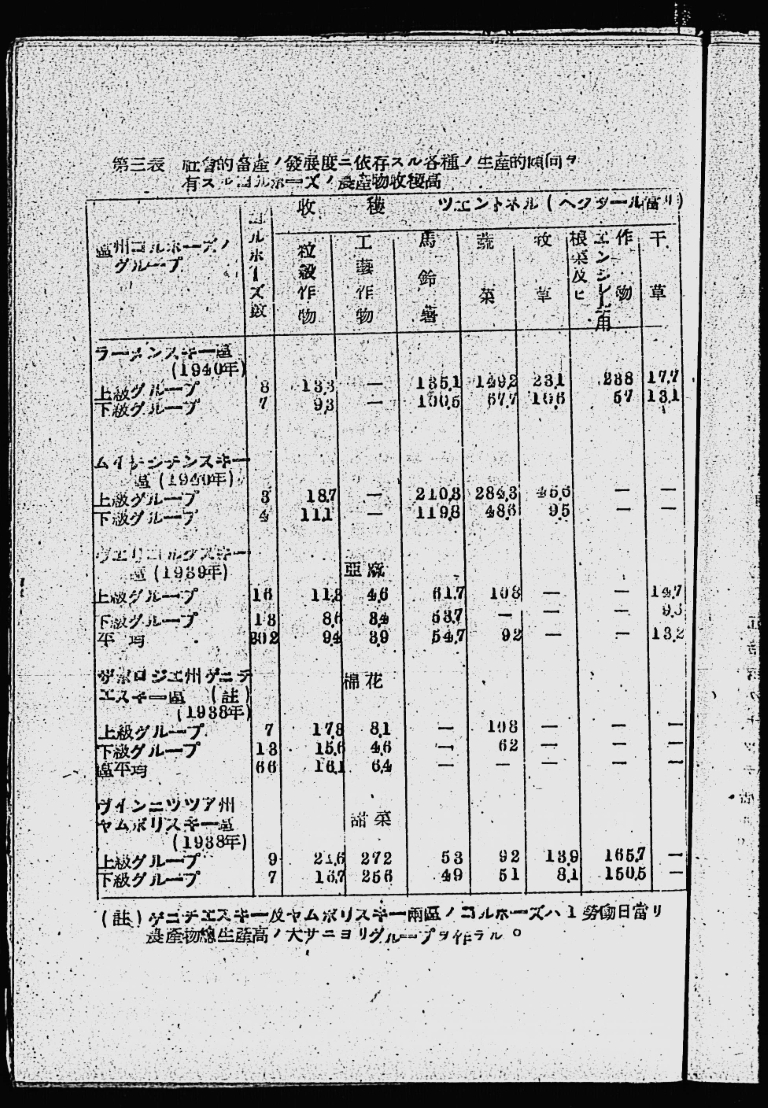 第三表 社會的畜産ノ發展度ニ依存スル各種ノ生産的傾向ヲ
有スルコルホーズノ農産物收穫高
收穫 ツエントネル(ヘクタール當リ)
區州コルホーズノグループ コルホーズ數 粒穀作物 工藝作物 馬鈴薯 蔬菜 牧草 根菜及ヒエンシレーヂ用作物 干草
ラーメンスキー區
(1940年)
上級グループ 8 13.3 — 135.1 149.2 23.1 238 17.7
下級グループ 7 9.3 — 100.5 67.7 10.6 57 13.1
ムイチシチンスキー
區(1940年)
上級グループ 3 18.7 — 210.3 284.3 45.6 — —
下級グループ 4 11.1 — 119.8 48.6 9.5 — —
ヴエリコルクスキー
區(1939年) 亞麻
上級グループ 16 11.3 4.6 61.7 108 — — 14.7
下級グループ 13 8.6 3.4 53.7 — — —
平均 302 9.4 3.9 54.7 92 — — 13.2
ザポロジエ州ゲニチ
エスキー區 (註) 棉花
(1938年)
上級グループ 7 17.8 8.1 — 108 — — —
下級グループ 13 15.6 4.6 — 62 — — —
區平均 66 16.1 6.4 — — — — —
ヴインニツツア州
ヤムポリスキー區 甜菜
(1938年)
上級グループ 9 21.6 272 53 92 13.9 165.7 —
下級グループ 7 16.7 256 49 51 8.1 150.5 —
(註) ゲニチエスキー及ヤムポリスキー兩區ノコルホーズハ1勞働日當リ
農産物總生産高ノ大サニヨリグループヲ作ラル。